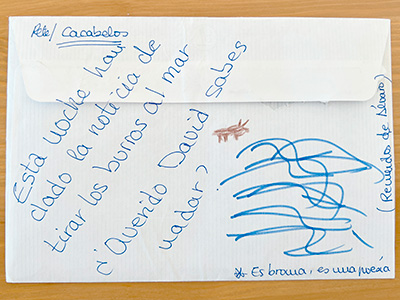 Pele/ Cacabelos
Esta noche han
dado la noticia de
tirar los burros al mar
¿Querido David sabes
nadar?
(Recuerdos de Álvaro)
* Es broma, es una poesía